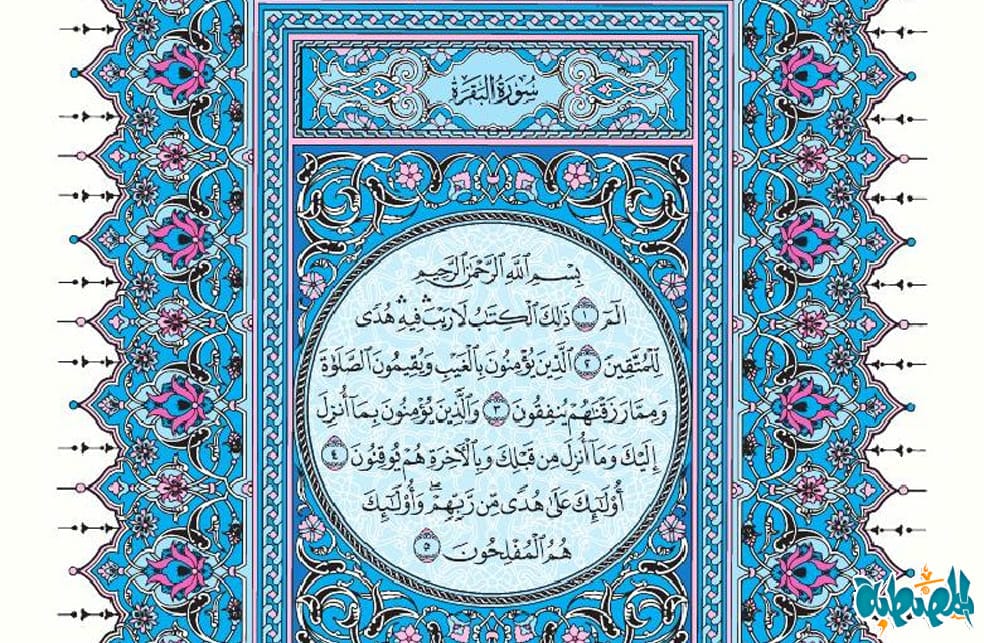 سُورَةُ البَقَرَةِ
بِسْمِ ٱللَّهِ ٱلرَّحْمَٰنِ ٱلرَّحِيمِ
الٓمٓ ۝١ ذَٰلِكَ ٱلْكِتَٰبُ لَا رَيْبَ ۛ فِيهِ ۛ هُدًى
لِّلْمُتَّقِينَ ۝٢ ٱلَّذِينَ يُؤْمِنُونَ بِٱلْغَيْبِ وَيُقِيمُونَ ٱلصَّلَوٰةَ
وَمِمَّا رَزَقْنَٰهُمْ يُنفِقُونَ ۝٣ وَٱلَّذِينَ يُؤْمِنُونَ بِمَآ أُنزِلَ
إِلَيْكَ وَمَآ أُنزِلَ مِن قَبْلِكَ وَبِٱلْأٓخِرَةِ هُمْ يُوقِنُونَ ۝٤
أُو۟لَٰٓئِكَ عَلَىٰ هُدًى مِّن رَّبِّهِمْ ۖ وَأُو۟لَٰٓئِكَ
هُمُ ٱلْمُفْلِحُونَ ۝٥